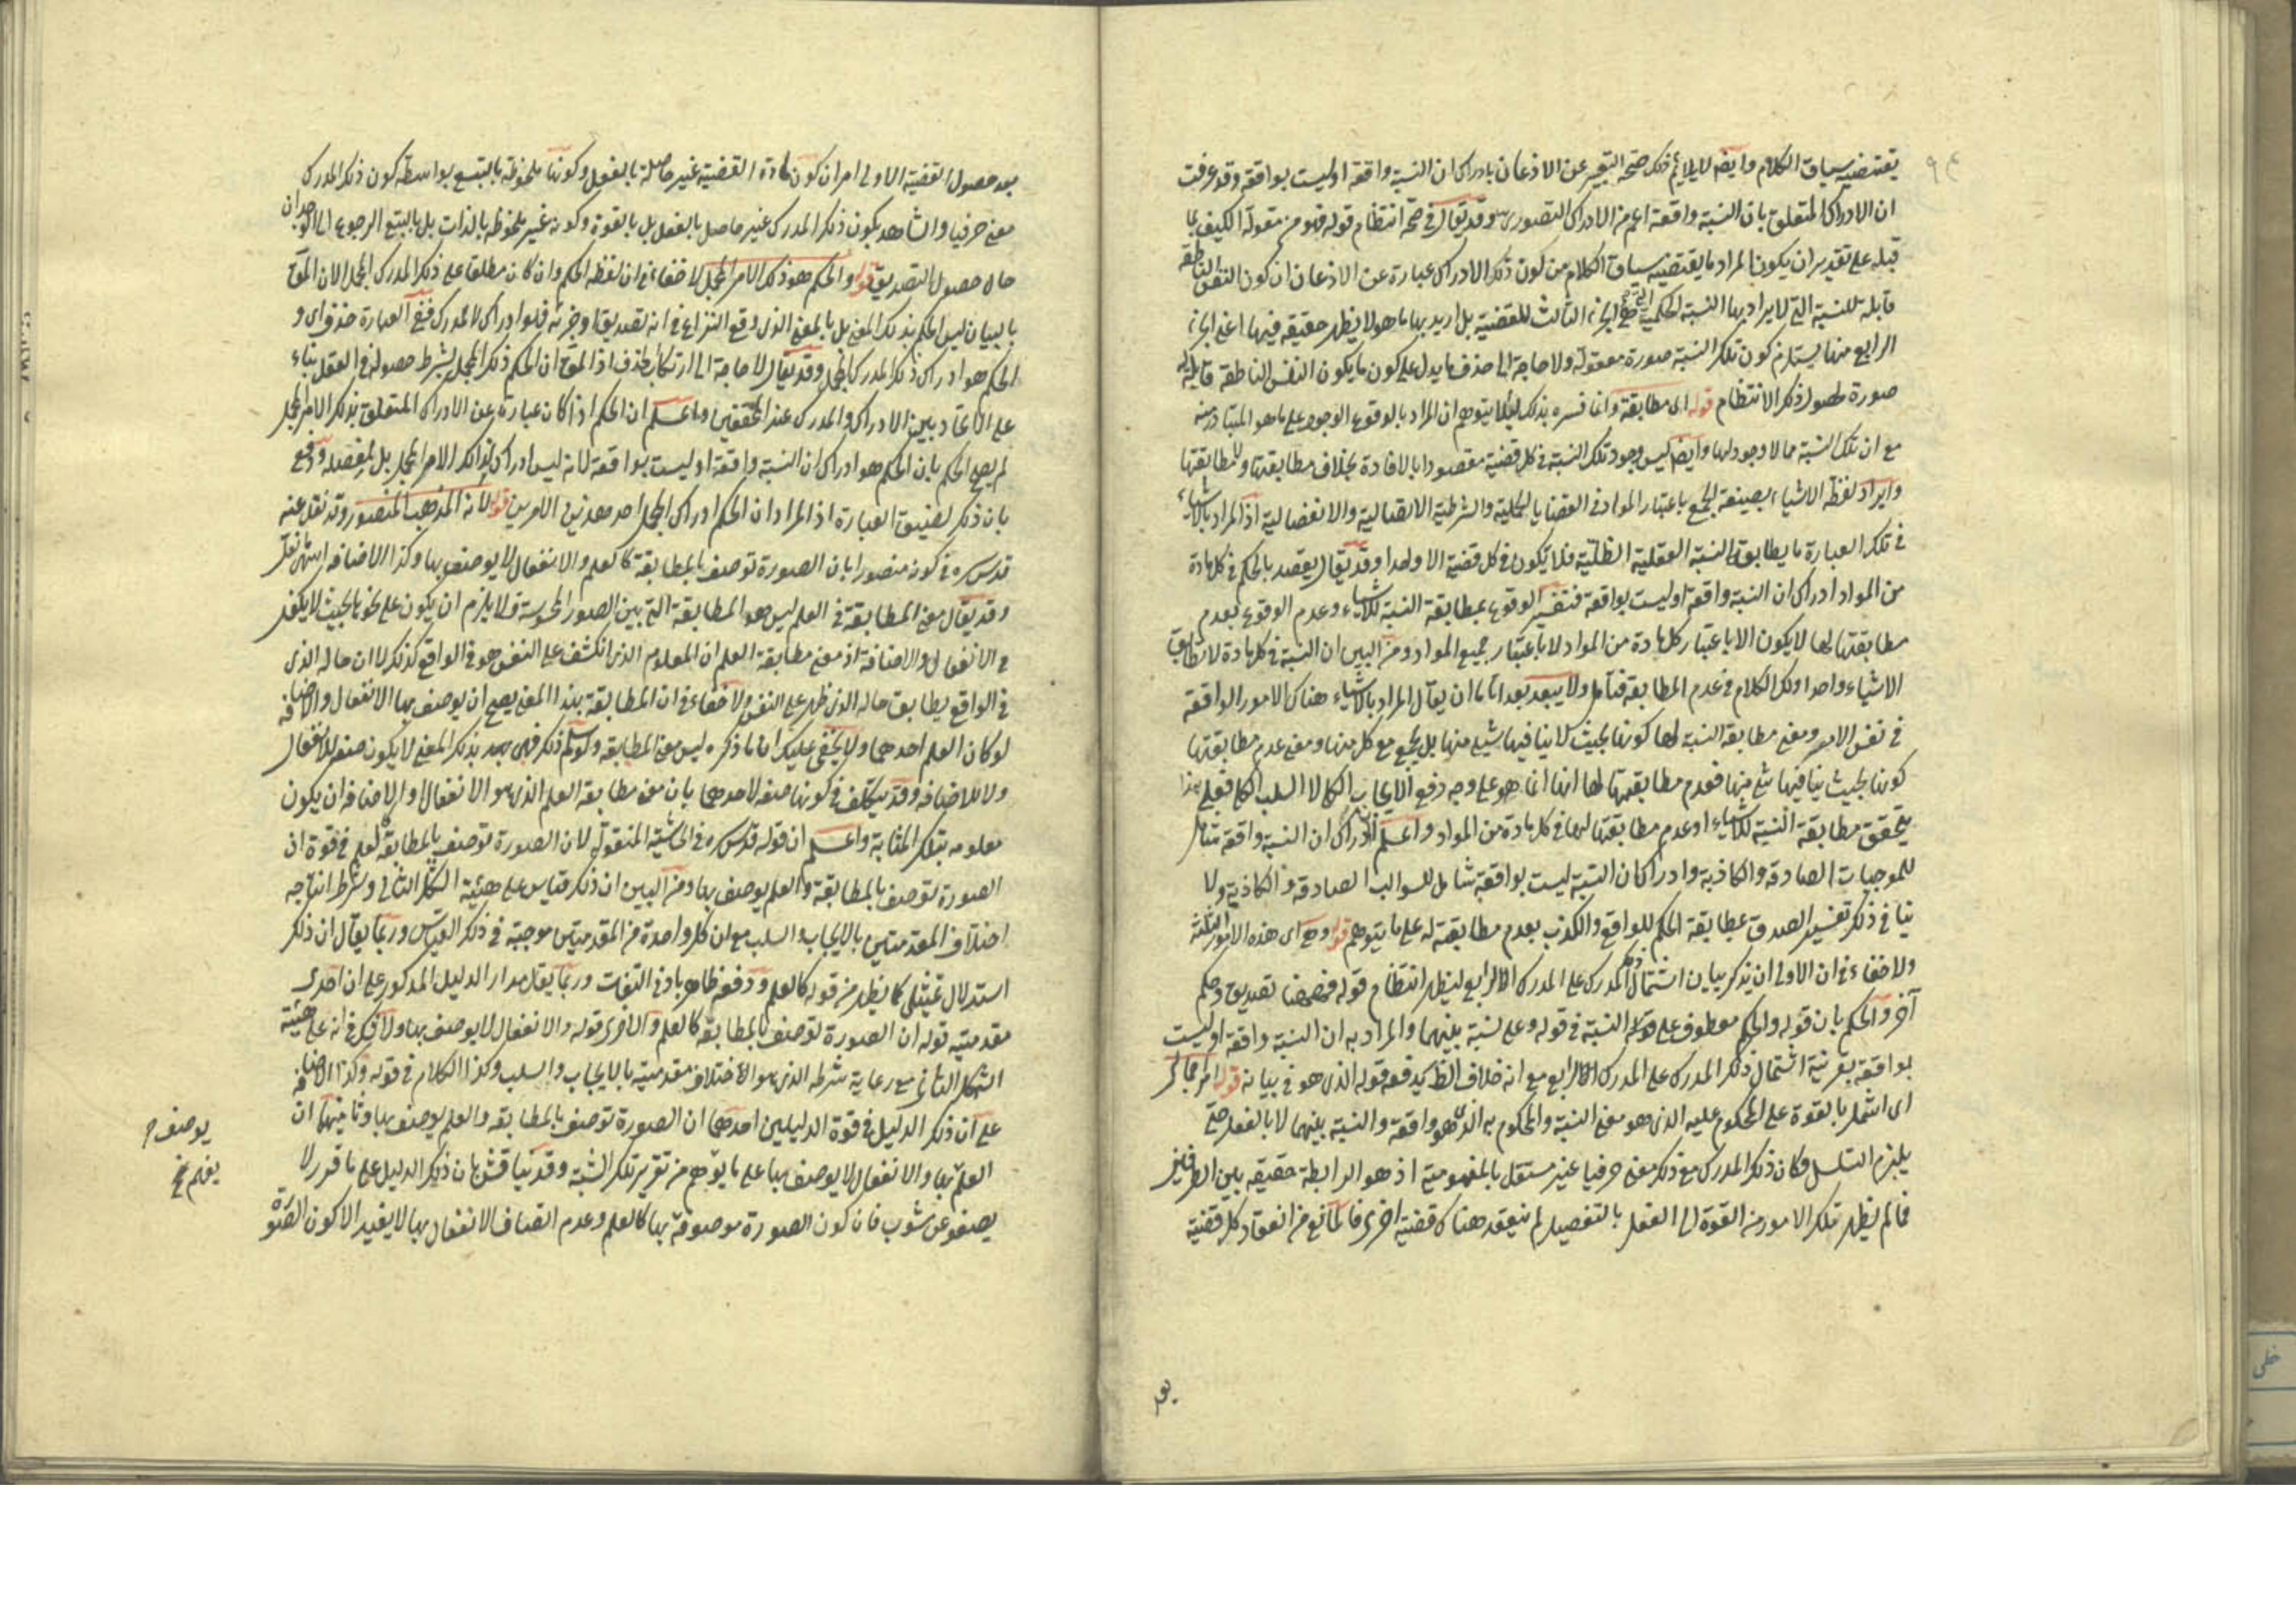 يقتضيه سياق الكلام وايضا لا يلايم ذلك صحة التعبير عن الاذعان بادراك ان النسبة واقعة او ليست بواقعة وقد عرفت
ان الادراك المتعلق بان النسبة واقعة اعم من الادراك التصوري وقد يقال في صحة انتظام قوله فهو من مقولة الكيف بما
قبله على تقدير ان يكون المراد ما يقتضيه سياق الكلام من كون ذلك الادراك عبارة عن الاذعان ان كون النفس الناطقة
قابلة للنسبة التي لا يراد بها النسبة الحكمية التي هي الجزء الثالث للقضية بل اريد بها ما هو لا يظهر حقيقة فيها اعني الجزء
الرابع منها يستلزم كون تلك النسبة صورة معقولة ولا حاجة الى حذف ما يدل على كون ما يكون النفس الناطقة قابلة له
صورة لحصول ذلك الانتظام قوله اى مطابقة وانما فسره بذلك لئلا يتوهم ان المراد بالوقوع الوجود على ما هو المتبادر منه
مع ان تلك النسبة مما لا وجود لها وايضا ليس وجود تلك النسبة في كل قضية مقصودا بالافادة بخلاف مطابقتها ولا مطابقتها
وايراد لفظة الاشياء بصيغة الجمع باعتبار المواد في القضايا الحملية والشرطية الاتصالية والانفصالية اذ المراد بالاشياء
في تلك العبارة ما يطابق النسبة العقلية الظلية فلا يكون في كل قضية الا واحدا وقد يقال يقصد بالحكم في كل مادة
من المواد ادراك ان النسبة واقعة او ليست بواقعة فتفسير الوقوع بمطابقة النسبة للاشياء وعدم الوقوع بعدم
مطابقتها لها لا يكون الا باعتبار كل مادة من المواد لا باعتبار جميع المواد ومن البين ان النسبة في كل مادة لا تطابق
الاشياء واحدا وكذا الكلام في عدم المطابقة فتأمل ولا يبعد بعدا تاما ان يقال المراد بالاشياء هناك الامور الواقعة
في نفس الامر ومعنى مطابقة النسبة لها كونها بحيث لا ينافيها شيء منها بل يجتمع مع كل منها ومعنى عدم مطابقتها
كونها بحيث ينافيها شئ منها فعدم مطابقتها لها انما هو على وجه رفع الايجاب الكلي لا السلب الكلي فعلى هذا
يتحقق مطابقة النسبة للاشياء او عدم مطابقتها لها في كل مادة من المواد واعلم ان ادراك ان النسبة واقعة شامل
للموجبات الصادقة والكاذبة وادراك ان النسبة ليست بواقعة شامل للسوالب الصادقة والكاذبة ولا
ينافي ذلك تفسير الصدق بمطابقة الحكم للواقع والكذب بعدم مطابقته له على ما يتوهم قوله وهى اى هذه الامور الثلثة
ولا خفاء في ان الاولى ان يذكر بيان اشتمال ذلك المدرك على المدرك الرابع ليظهر انتظام قوله فههنا تصديق وحكم
آخر والحكم بان قوله والحكم معطوف على قوله النسبة في قوله وعلى نسبة بينهما والمراد به ان النسبة واقعة او ليست
بواقعة بقرينة اشتمال ذلك المدرك على المدرك الرابع مع انه خلاف الظاهر يدفعه قوله الذى هو في بيانه قوله امر مجمل
اى اشتمل بالقوة على المحكوم عليه الذى هو معنى النسبة والمحكوم به الذى هو واقعة والنسبة بينهما لا بالفعل حتى
يلزم التسلسل وكان ذلك المدرك مع ذلك معنى حرفيا غير مستقل بالمفهومية اذ هو الرابطة حقيقة بين الطرفين
فما لم يظهر تلك الامور من القوة الى الفعل بالتفصيل لم ينعقد هناك قضية اخرى فالمانع من انعقاد كل قضية
بعد حصول القضية الاولى امران كون مادة القضية غير حاصلة بالفعل وكونها ملحوظة بالتبع بواسطة كون ذلك المدرك
معنى حرفيا والشاهد بكون ذلك المدرك غير حاصل بالفعل بل بالقوة وكونه غير ملحوظ بالذات بل بالتبع الرجوع الى الوجدان
حال حصول التصديق قوله والحكم هو ذلك الامر المجمل لا خفاء في ان لفظ الحكم وان كان مطلقا على ذلك المدرك المجمل الا ان المقصود
بالبيان ليس الحكم بذلك المعنى بل بالمعنى الذى وقع النزاع في انه تصديق او جزئه فهو ادراك لا المدرك ففي العبارة حذف اى و
الحكم هو ادراك ذلك المدرك المجمل وقد يقال لا حاجة الى ارتكاب الحذف اذ المقصود ان الحكم ذلك المجمل بشرط حصوله في العقل بناء
على الاتحاد بين الادراك والمدرك عند المحققين واعلم ان الحكم اذا كان عبارة عن الادراك المتعلق بذلك الامر المجمل
لم يصح الحكم بان الحكم هو ادراك ان النسبة واقعة او ليست بواقعة لانه ليس ادراك لذلك الامر المجمل بل لمفصله ودفع
بان ذكر لضيق العبارة اذ المراد ان الحكم ادراك المجمل احد هذين الامرين قوله لانه المذهب المنصور وقد نقل عنه
قدس سره في كونه منصورا بان الصورة توصف بالمطابقة كالعلم والانفعال لا يوصف بها وكذا الاضافة انتهى نقل
وقد يقال معنى المطابقة في العلم ليس هو المطابقة التي بين الصور المحسوسة ولا يلزم ان يكون على نحو ما بحيث لا يكفي
في الانفعال والاضافة اذ معنى مطابقة العلم ان المعلوم الذى انكشف على النفس هو في الواقع كذلك لا ان حاله الذى
في الواقع يطابق حاله الذى ظهر على النفس ولا خفاء في ان المطابقة بهذا المعنى يصح ان يوصف بها الانفعال والاضافة
لو كان العلم احدهما ولا يخفى عليك ان ما ذكره ليس معنى المطابقة ولو سلم ذلك فهى بعد بذلك المعنى لا يكون صفة للانفعال
ولا للاضافة وقد يتكلف في كونها صفة لاحدهما بان معنى مطابقة العلم الذى هو الانفعال او الاضافة ان يكون
معلومه بتلك المثابة واعلم ان قوله قدس سره في الحاشية المنقولة لان الصورة توصف بالمطابقة كالعلم في قوة ان
الصورة توصف بالمطابقة والعلم يوصف بها ومن البين ان ذلك قياس على هيئة الشكل الثاني وشرط انتاجه
اختلاف المقدمتين بالايجاب والسلب مع ان كل واحدة من المقدمتين موجبة في ذلك القياس وربما يقال ان ذلك
استدلال تمثيلى كما يظهر من قوله كالعلم ودفعه ظاهر بادنى التفات وربما يقال مدار الدليل المذكور على ان احدى
مقدمتيه قوله ان الصورة توصف بالمطابقة كالعلم والاخرى قوله والانفعال لا يوصف بها ولا شك في انه على هيئة
الشكل الثاني مع رعاية شرطه الذى هو الاختلاف مقدمتيه بالايجاب والسلب وكذا الكلام في قوله وكذا الاضافة
على ان ذلك الدليل في قوة الدليلين احدهما ان الصورة توصف بالمطابقة والعلم يوصف بها وثانيهما ان
العلم بها والانفعال لا يوصف بها على ما يتوهم من تقرير تلك الشبهة وقد يناقش بان ذلك الدليل على ما قرر لا
يصفو عن شوب فان كون الصورة موصوفة بها كالعلم وعدم اتصاف الانفعال بها لا يفيد الا كون الصورة
يوصف